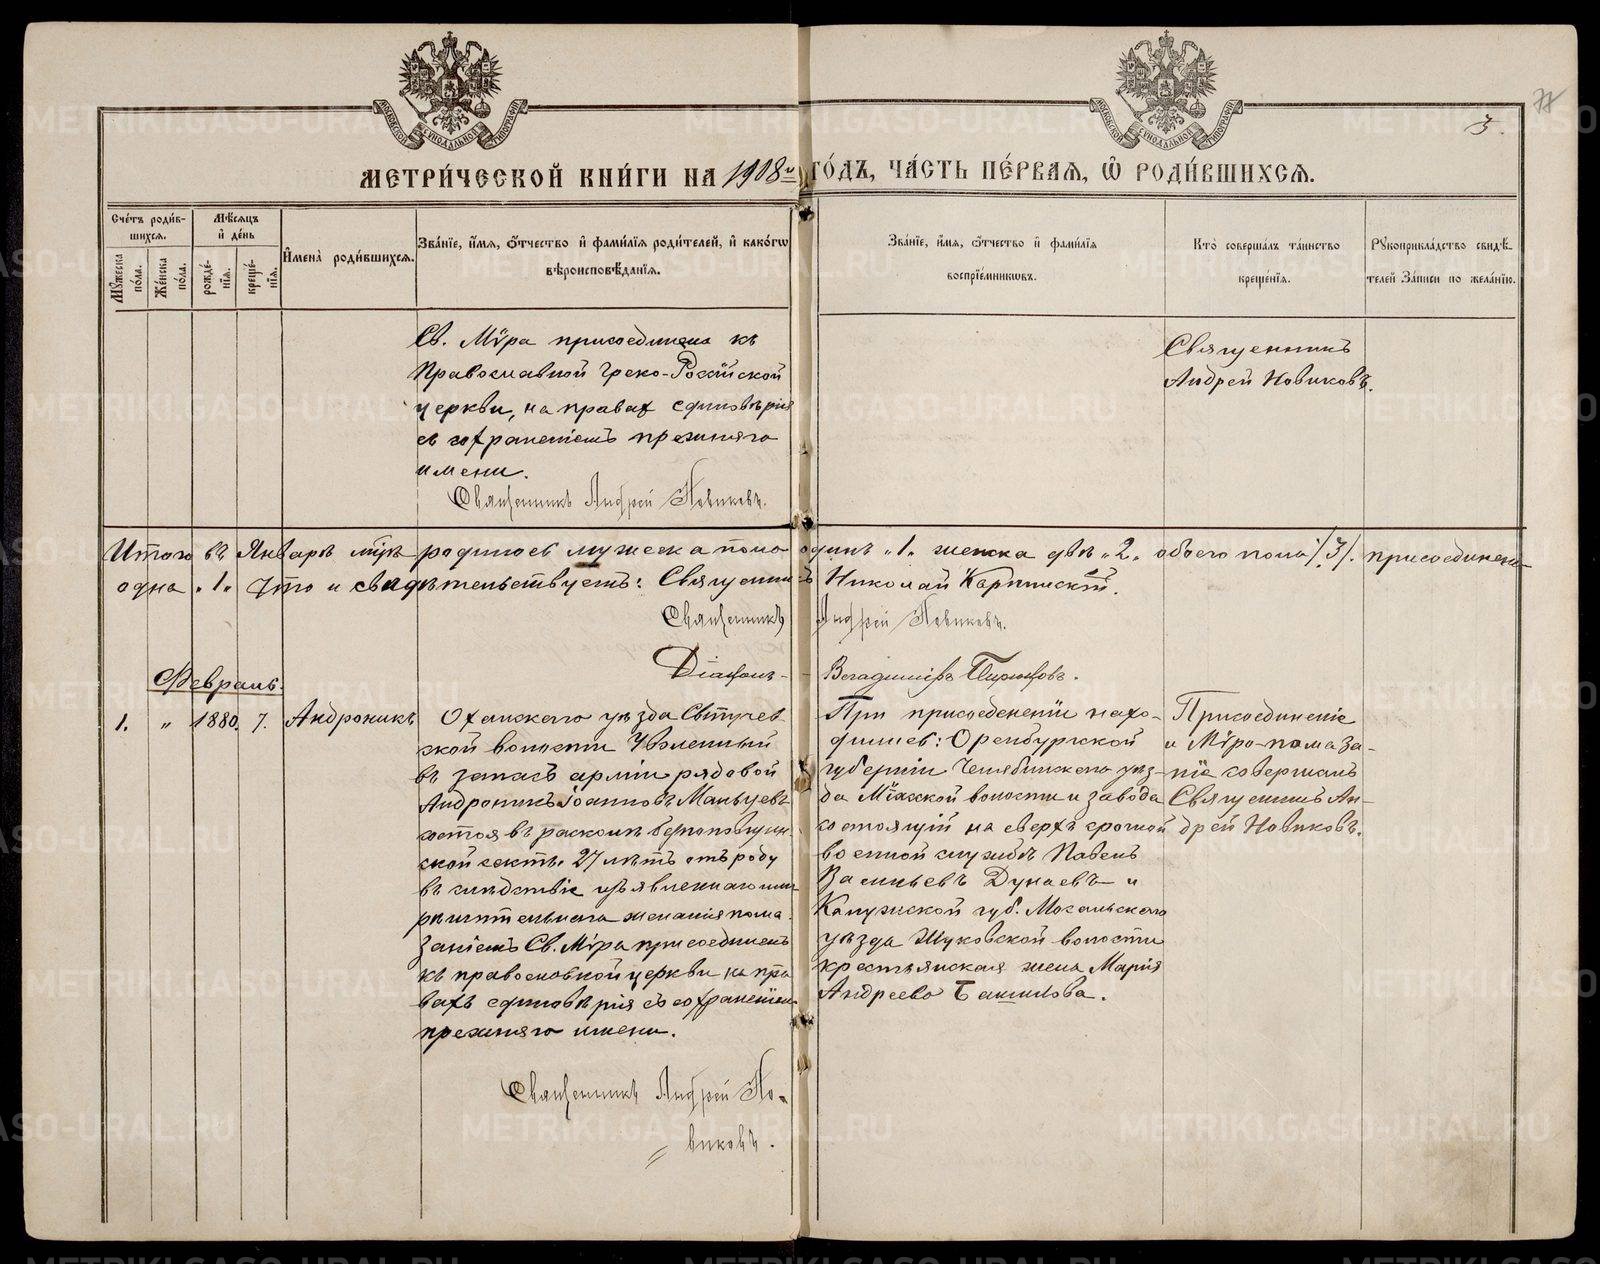 77
3.
МОСКОВСКОЙ СѴНОДАЛЬНОЙ ТИПОГРАФІИ
МОСКОВСКОЙ СѴНОДАЛЬНОЙ ТИПОГРАФІИ
МЕТРИ́ЧЕСКОЙ КНИ́ГИ НА 1908й ГО́ДЪ, ЧА́СТЬ ПЕ́РВАѦ, Ѡ҆ РОДИ́ВШИХСѦ.
Сче́тъ роди́вшихсѧ.
Мꙋ́жеска по́ла.
Же́нска по́ла.
Мѣ́сѧцъ и҆ де́нь
рожде́нїѧ.
креще́нїѧ.
И҆мена̀ роди́вшихсѧ.
Зва́нїе, и҆́мѧ, ѻ҆́тчество и҆ фами́лїѧ роди́телей, и҆ како́гѡ
вѣроисповѣ́данїѧ.
Зва́нїе, и҆́мѧ, ѻ҆́тчество и҆ фами́лїѧ
воспрїе́мникѡвъ.
Кто̀ соверша́лъ та́инство
креще́нїѧ.
Рꙋкоприкла́дство свидѣ́-
телей за́писи по жела́нїю.
Св. Мѵра присоединена къ
Православной Греко-Россійской
церкви, на правах единовѣрія
съ сохраненіемъ прежняго
имени.
Священникъ Андрей Новиковъ.
Священникъ
Андрей Новиковъ.
Итого въ Январѣ мцѣ родилось мужеска пола одинъ „1„ женска двѣ „2„ обоего пола /3/. присоединена
одна „1„ Что и свидѣтельствуетъ: Священникъ Николай Карпинскій.
Священникъ Андрей Новиковъ.
Діаконъ - Владиміръ
Февраль.
1. „ 1880. 7. Андроникъ
Оханскаго уѣзда
ской волости Уволенный
въ запасъ арміи рядовой
Андроникъ Іоанновъ Мальцевъ
состоя въ расколѣ безпоповщин-
ской секты 27 лѣтъ отъ роду
въ слѣдствіе изъявленнаго имъ
рѣшительнаго желанія пома-
заніемъ Св. Мѵра присоединенъ
къ православной церкви на пра-
вахъ единовѣрія съ сохраненіемъ
прежняго имени.
Священникъ Андрей Но-
виковъ.
При присоединеніи нахо-
дились: Оренбургской
губерніи Челябинскаго уѣз-
да Міасской волости и завода
состоящій на сверхъ срочной
военной службѣ Павелъ
Васильевъ Дунаевъ и
Калужской губ. Мосальскаго
уѣзда Жуковской волости
крестьянская жена Марія
Андреева
Присоединеніе
и Мѵро-помаза-
ніе совершалъ
Священникъ Ан-
дрей Новиковъ.
METRIKI.GASO-URAL.RU